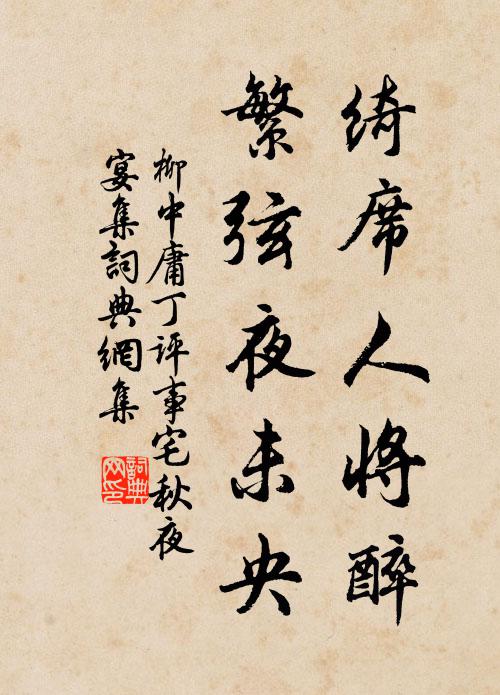 綺席人將醉
繁弦夜未央
柳中庸丁評事宅秋夜
宴集詞典網集
詞典
网印